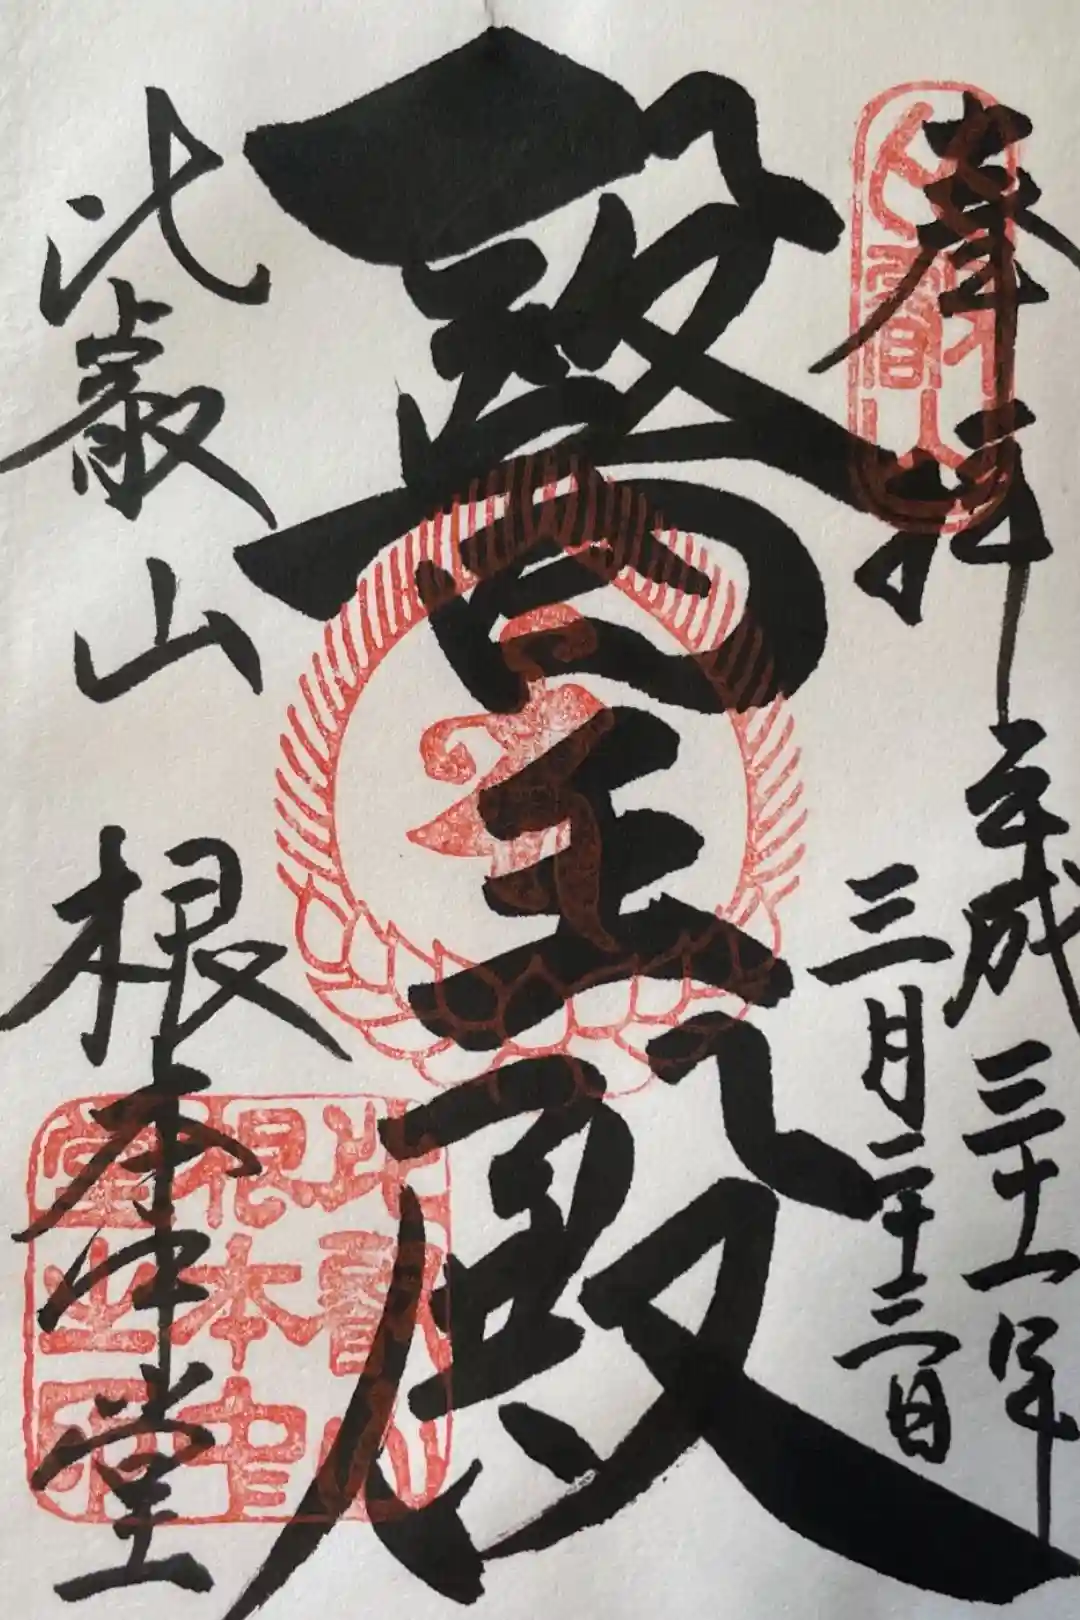 奉拝
平成三十一年
三月二十三日
醫王殿
比叡山
根本中堂
比叡山
根本中
堂之印